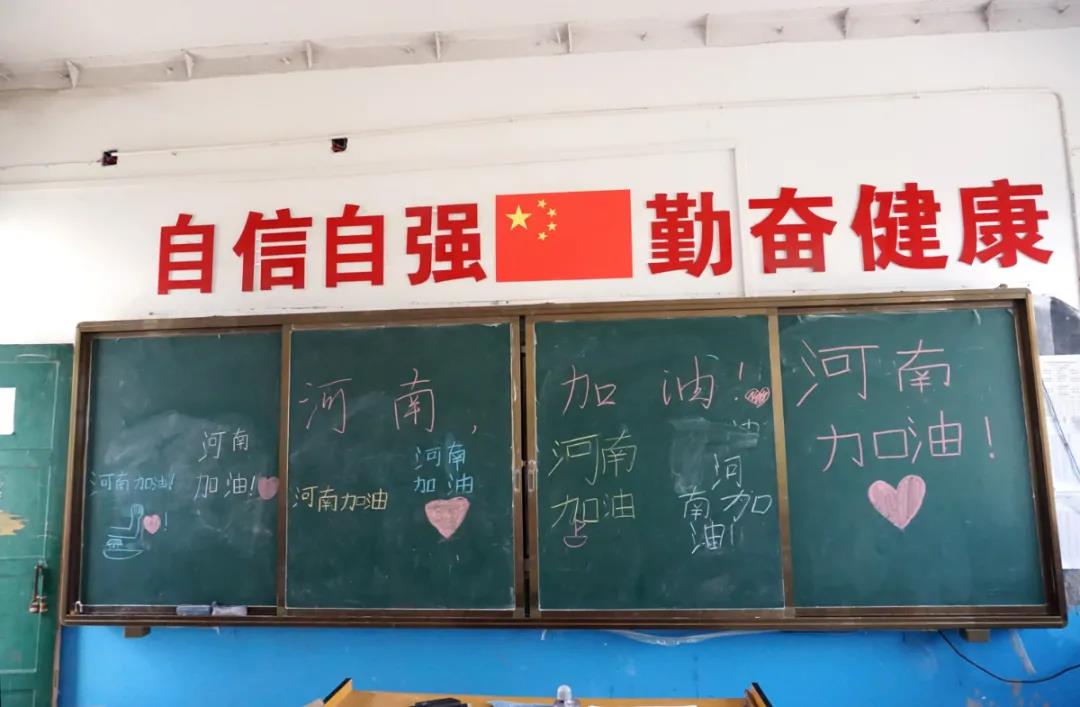 自信自强 勤奋健康
河南加油!
河南
加油!
!
河南,
河南加油
河南
加油
加油!
河南
加油
油
河
南加
油!!
河南
加油!